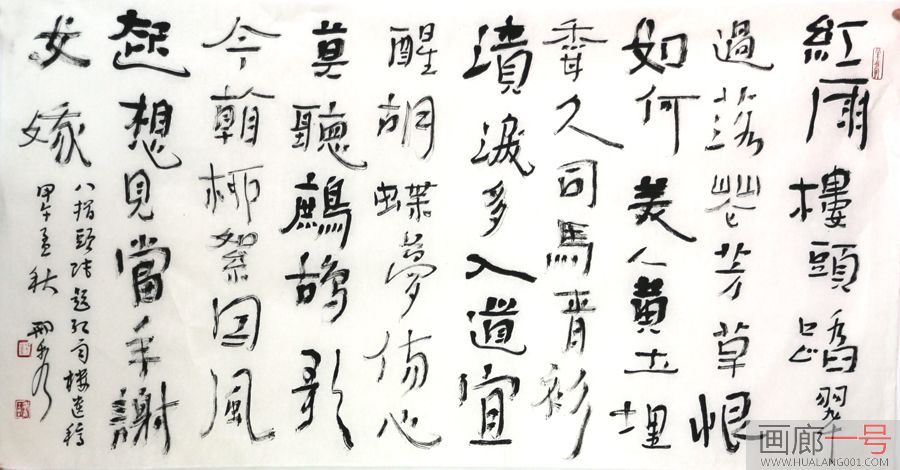 紅雨樓頭踏翠
過落花芳草恨
如何美人黃土埋
香久司馬青衫
漬淚多入道宜
醒胡蝶夢傷心
莫聽鷓鴣歌
今朝柳絮因風
起想見當年謝
女娥
八指頭陀題紅雨樓遺稿
甲午孟秋
画廊一号
WWW.HUALANG001.COM